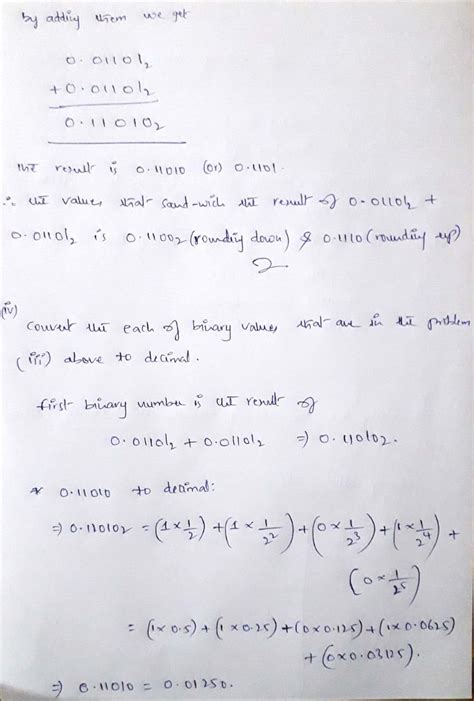 by adding them we get
0.01101₂
+0.01101₂
0.11010₂
the result is 0.11010 (or) 0.1101.
∴ the values that sand-wich the result of 0.01101₂ +
0.01101₂ is 0.1100₂ (rounding down) & 0.1110 (rounding up)
2
(iv)
Convert the each of binary values that are in the problem
(iii) above to decimal.
first binary number is the result of
0.01101₂ + 0.01101₂ ⇒ 0.11010₂.
0.11010 to decimal:
⇒ 0.11010₂ = (1×1/2) + (1×1/2²) + (0×1/2³) + (1×1/2⁴) +
(0×1/2⁵)
= (1×0.5) + (1×0.25) + (0×0.125) + (1×0.0625)
+ (0×0.03125).
⇒ 0.11010 = 0.01250.